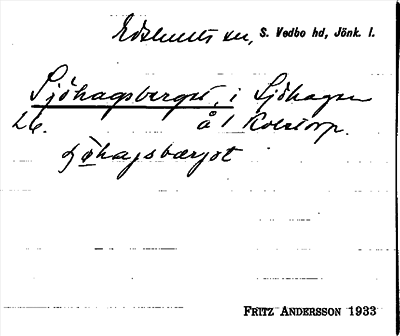 Edshults sn, S. Vedbo hd, Jönk. l.
Sjöhagsberget, i Sjöhagen
å / Roestorp.
sjöhagsbærjət
FRITZ ANDERSSON 1933